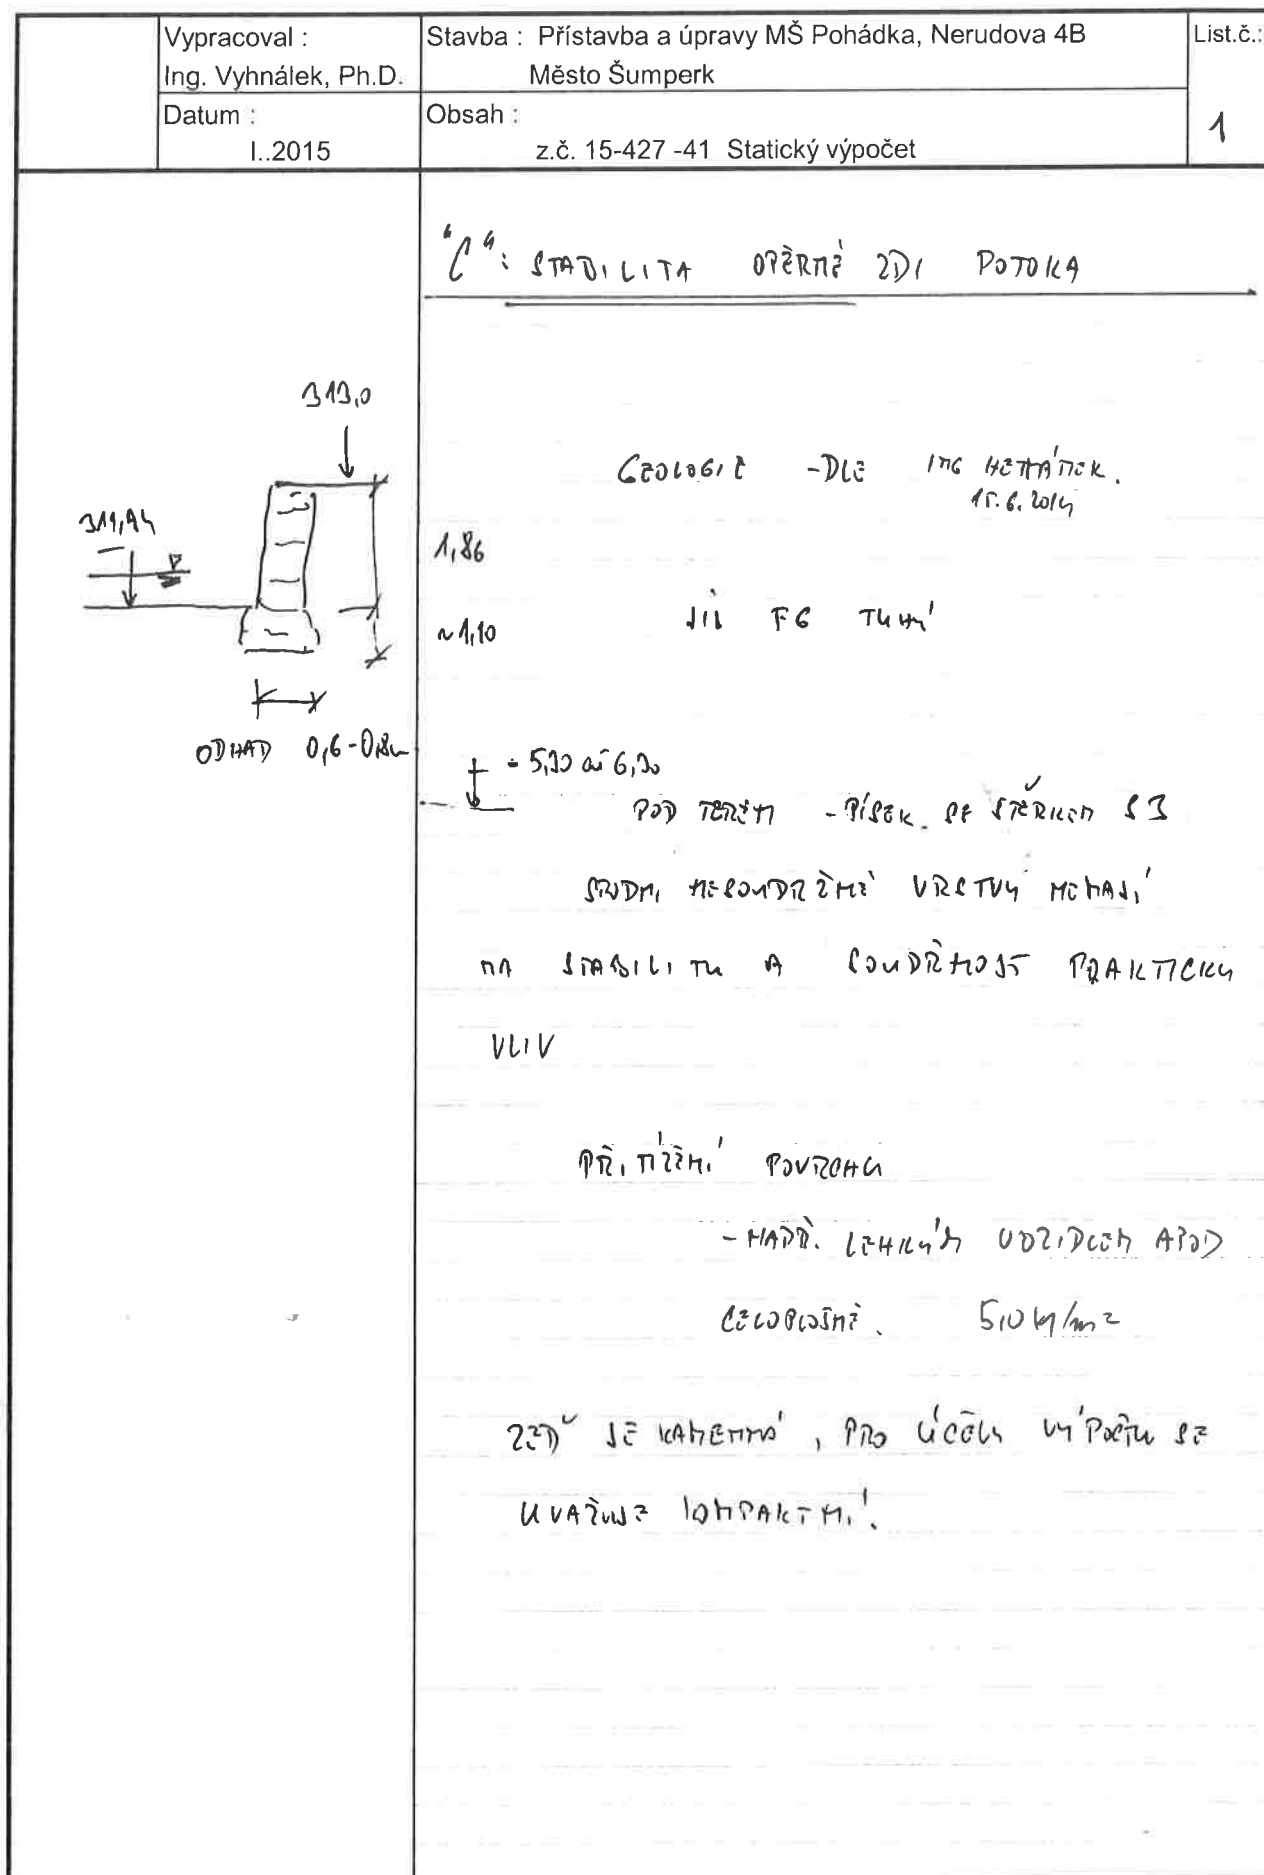 Vypracoval :
Ing. Vyhnálek, Ph.D.
Datum :
I..2015
Stavba : Přístavba a úpravy MŠ Pohádka, Nerudova 4B
Město Šumperk
Obsah :
z.č. 15-427 -41 Statický výpočet
List.č.:
1
"C": STABILITA OPĚRNÉ ZDI POTOKA
313,0
1,86
~1,10
ODHAD 0,6-0,8m
GEOLOGIE - DLE ING
15.6.2014
JÍL F6 TUHÝ
5,30 až 6,30
POD TERÉN - PÍSEK SE ŠTĚRKEM S3
SPODNÍ NESOUDRŽNÉ VRSTVY NEMAJÍ
NA STABILITU A SOUDRŽNOST PRAKTICKY
VLIV
PŘITÍŽENÍ POVRCHU
- LEHKÝM VOZIDLEM APOD
CELOPLOŠNĚ. 5,0 kN/m2
ZEĎ JE KAMENNÁ, PRO ÚČELY VÝPOČTU SE
UVAŽUJE KOMPAKTNÍ.